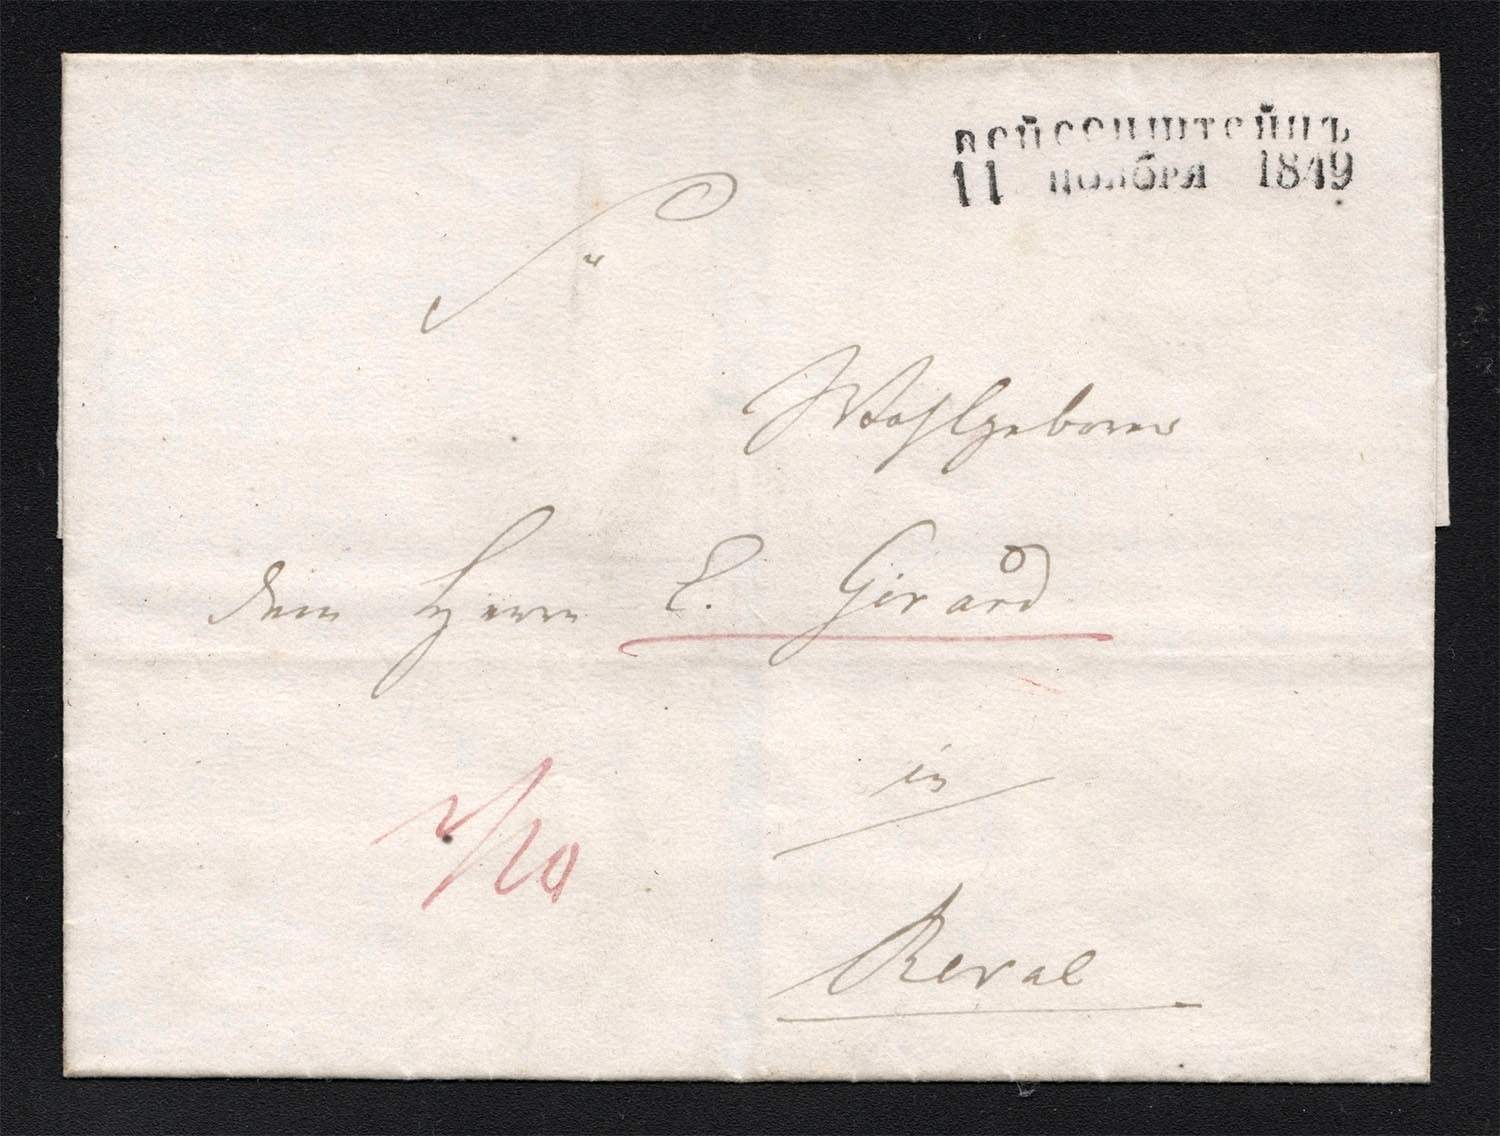 вейсенштейнъ
11 ноября 1849
Sr
Wohlgeboren
dem Herrn E. Girard
in
Reval